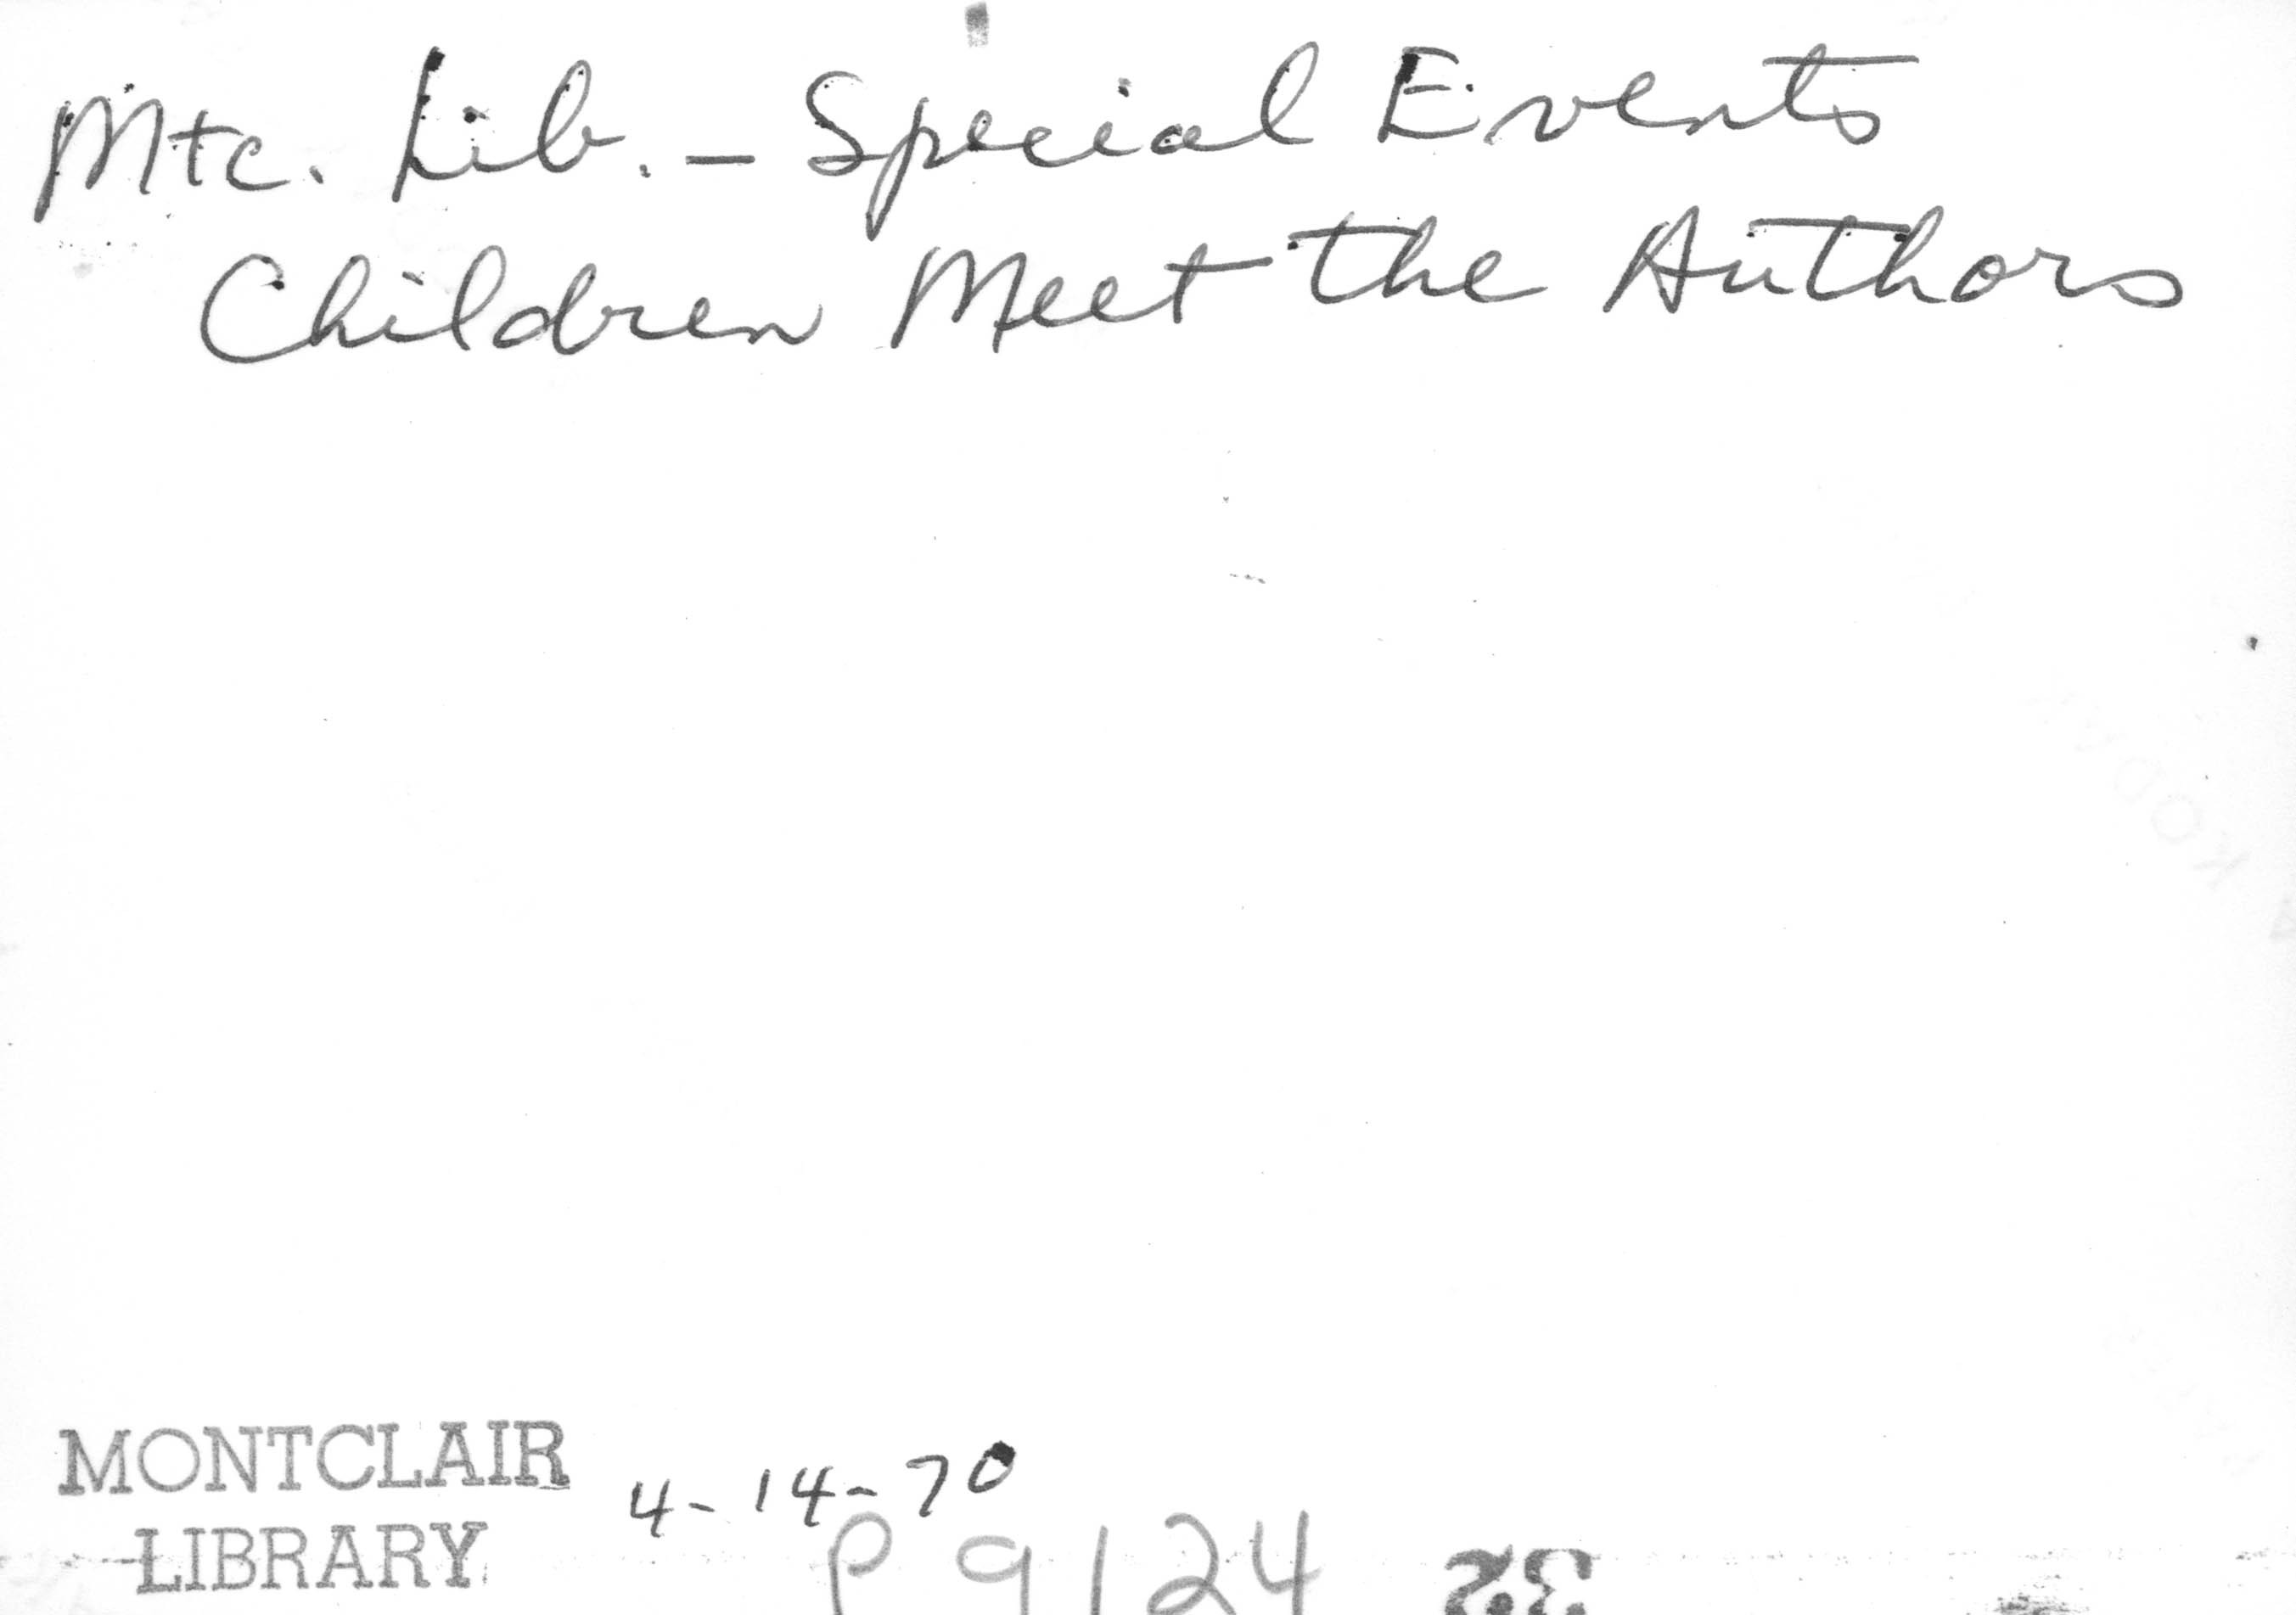 Mtc. Lib. - Special Events
Children Meet the Authors
KODAK
MONTCLAIR
LIBRARY
4-14-70
P 9124